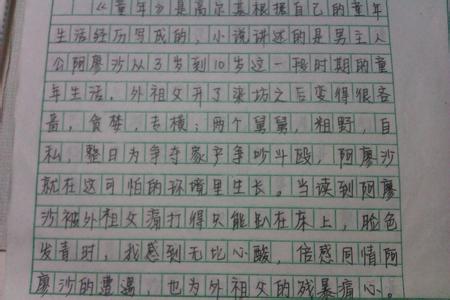 《童年》是高尔基根据自己的童年
生活经历写成的，小说讲述的是男主人
公阿廖沙从3岁到10岁这一段时期的童
年生活。外祖父开了染坊之后变得很吝
啬，贪婪，专横；两个舅舅，粗野，自
私，整日为争夺家产争吵斗殴，阿廖沙
就在这可怕的环境里生长。当读到阿廖
沙被外祖父毒打得只能趴在床上，脸色
发青时，我感到无比心酸，倍感同情阿
廖沙的遭遇，也为外祖父的残暴痛心。